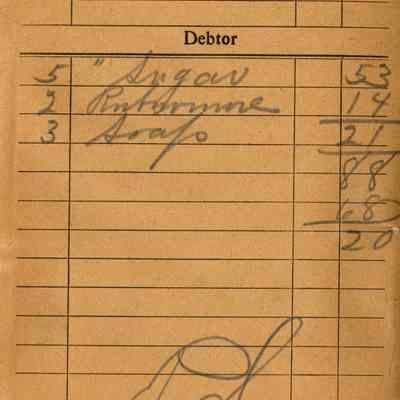 Debtor
5 " Sugar 53
2 14
3 Soap 21
88
68
20